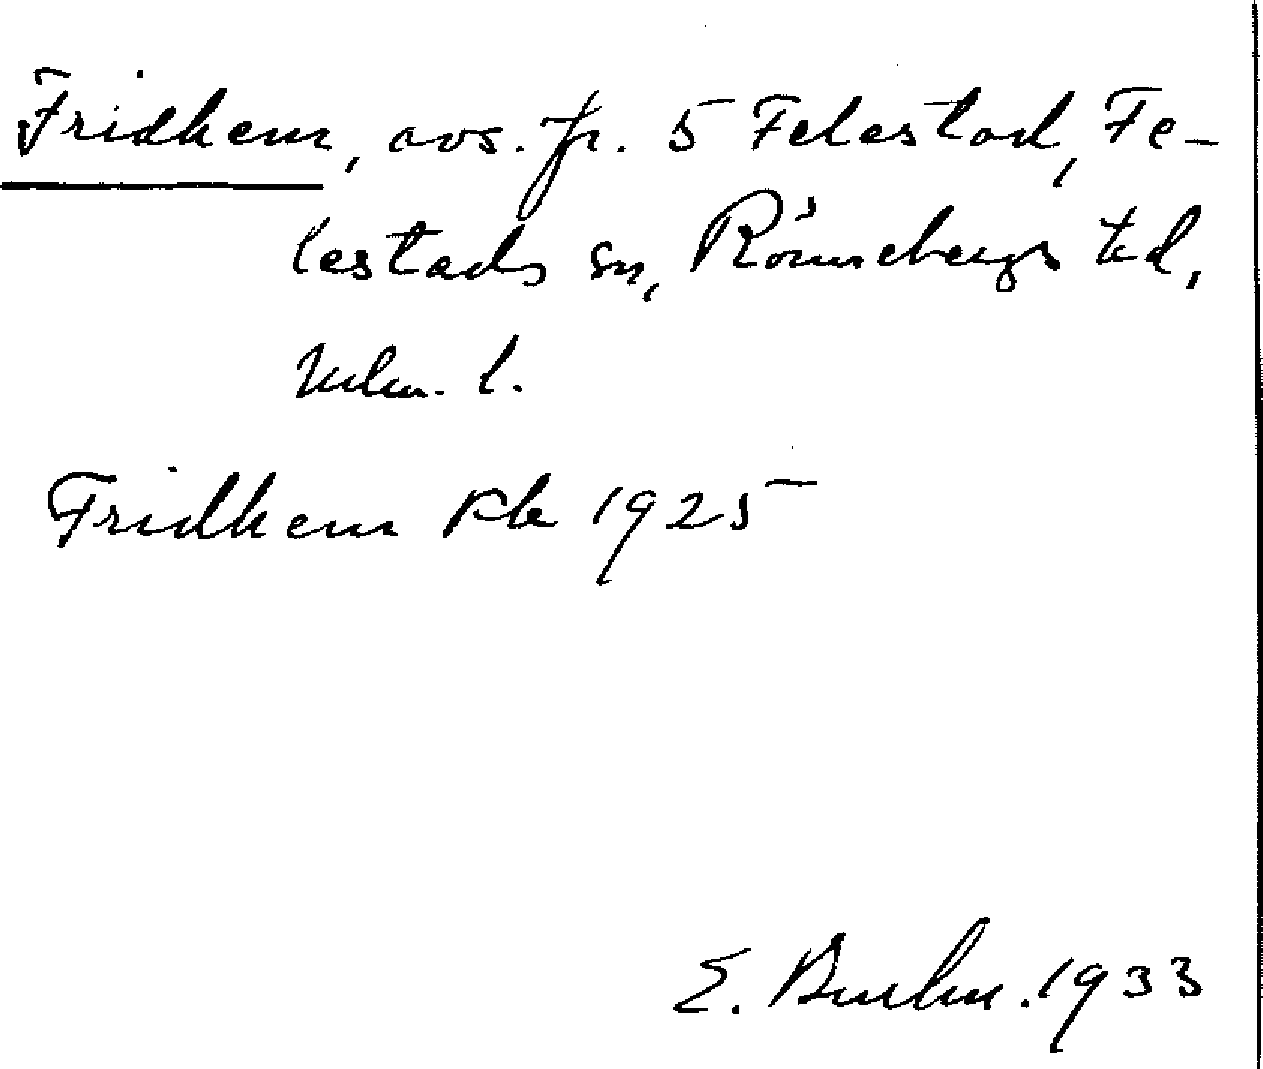 Fridhem, avs. fr. 5 Felestad, Fe-
lestads sn, Rönnebergs hd,
Mlm. l.
Fridhem Pk 1925
E. 1933